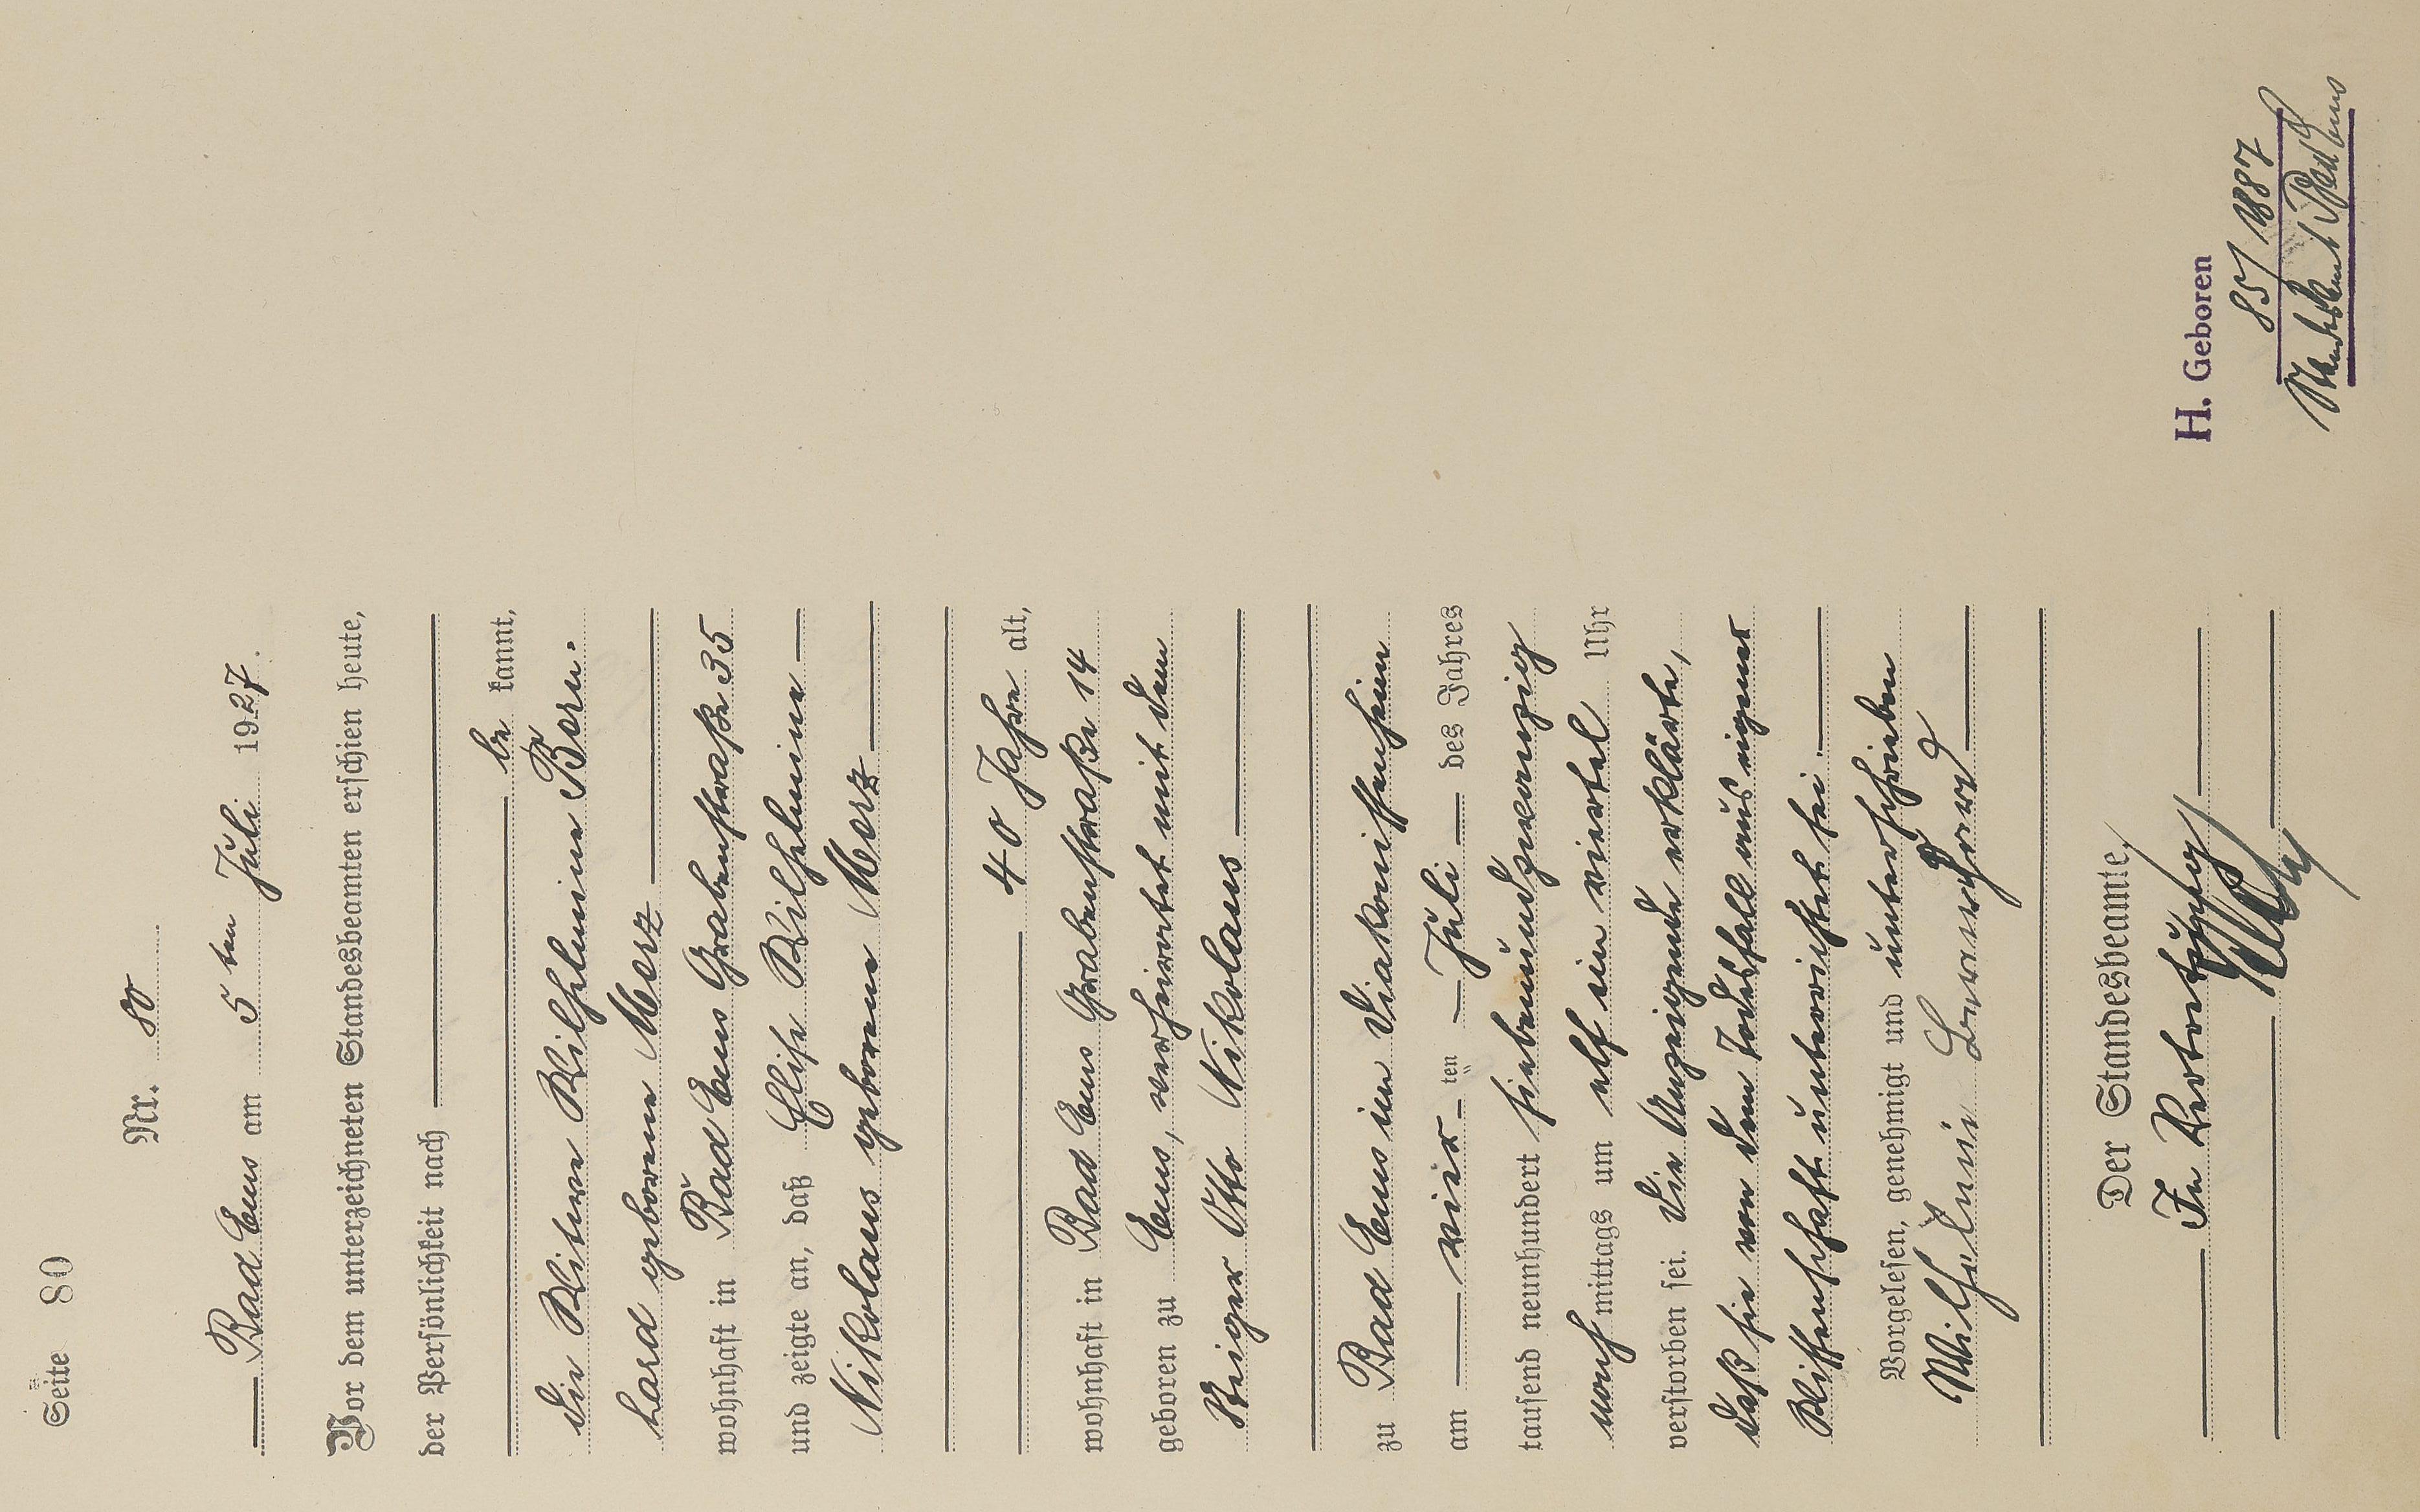 Seite 80
Nr. 80
Bad Ems am 5 ten Juli 1927.
Vor dem unterzeichneten Standesbeamten erschien heute,
der Persönlichkeit nach
be kannt,
die Witwe Wilhelmine Bern-
hard geborene Merz
wohnhaft in Bad Ems Grabenstraße 35
und zeigte an, daß Elise Wilhelmine
Nikolaus geborene Merz
40 Jahre alt,
wohnhaft in Bad Ems Grabenstraße 14
geboren zu Ems, verheiratet mit dem
Steiger Otto Nikolaus
zu Bad Ems im Diakonissenheim
am vier ten Juli des Jahres
tausend neunhundert siebenundzwanzig
nach mittags um elf ein viertel Uhr
verstorben sei. Die Anzeigende erklärte,
daß sie von dem Todesfall aus eigener
Wissenschaft unterrichtet sei.
Vorgelesen, genehmigt und unterschrieben
Wilhelmine Bernhard
Der Standesbeamte,
In Vertretung
H. Geboren
85/1887
Standesamt Bad Ems